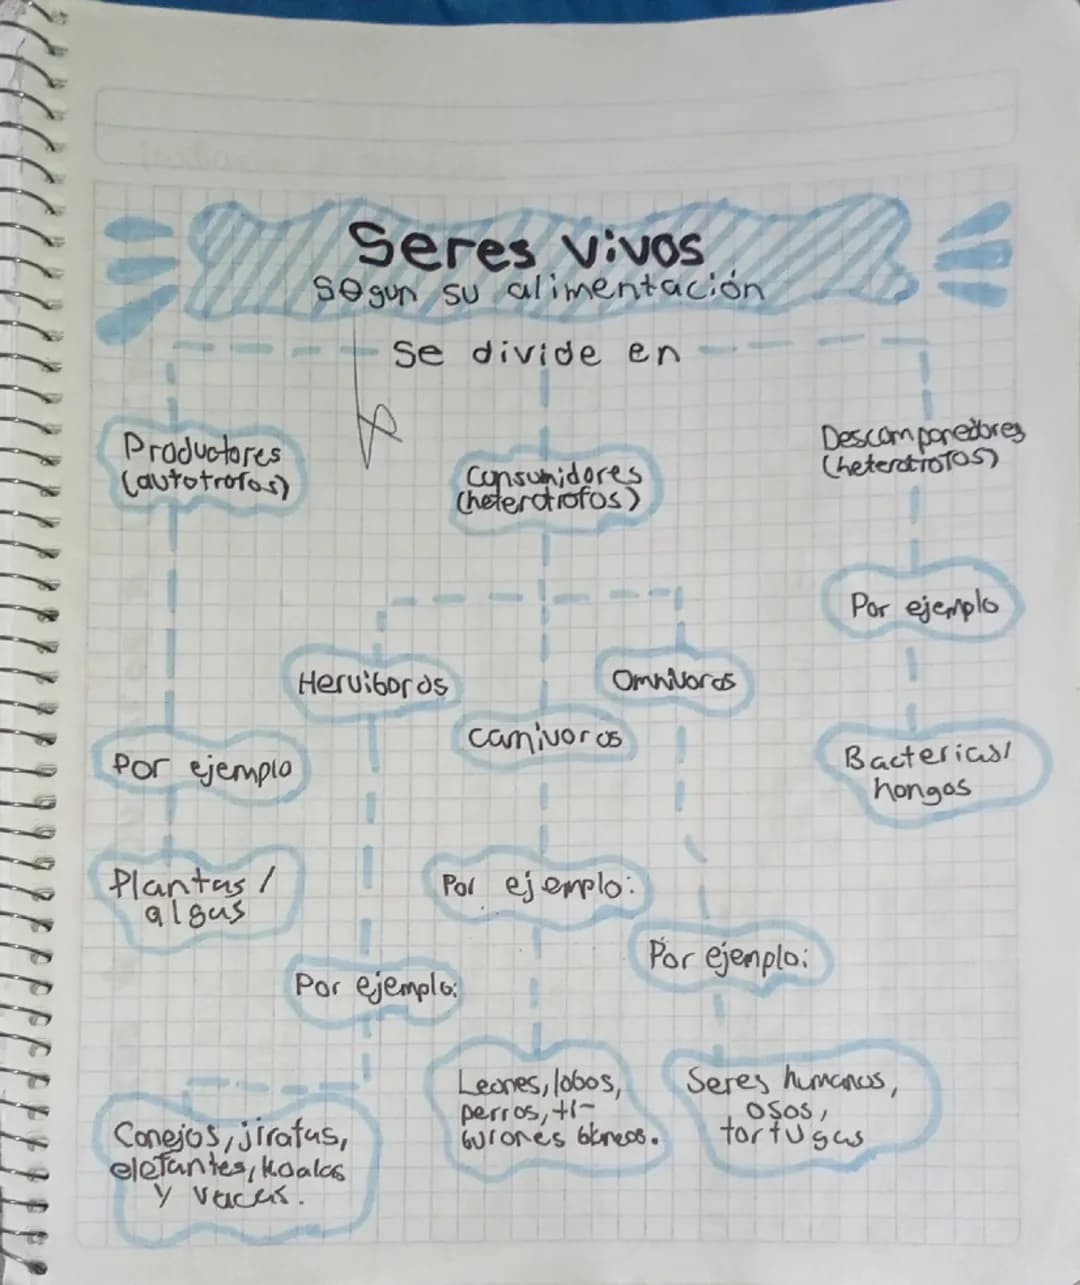 Seres vivos
segun su alimentación
se divide en
Productores
(autotrofos)
Consumidores
(heterotrofos)
Descomponedores
(heterotrofos)
Por ejemplo
Herviboros
Omnivoros
carnivoros
Por ejemplo
Bacterias/
hongos
Plantas /
algas
Por ejemplo:
Por ejemplo:
Por ejemplo:
Leones, lobos,
perros, ti-
burones blancos.
Seres humanos,
osos,
tortugas
Conejos, jirafas,
elefantes, koalas
y vacas.